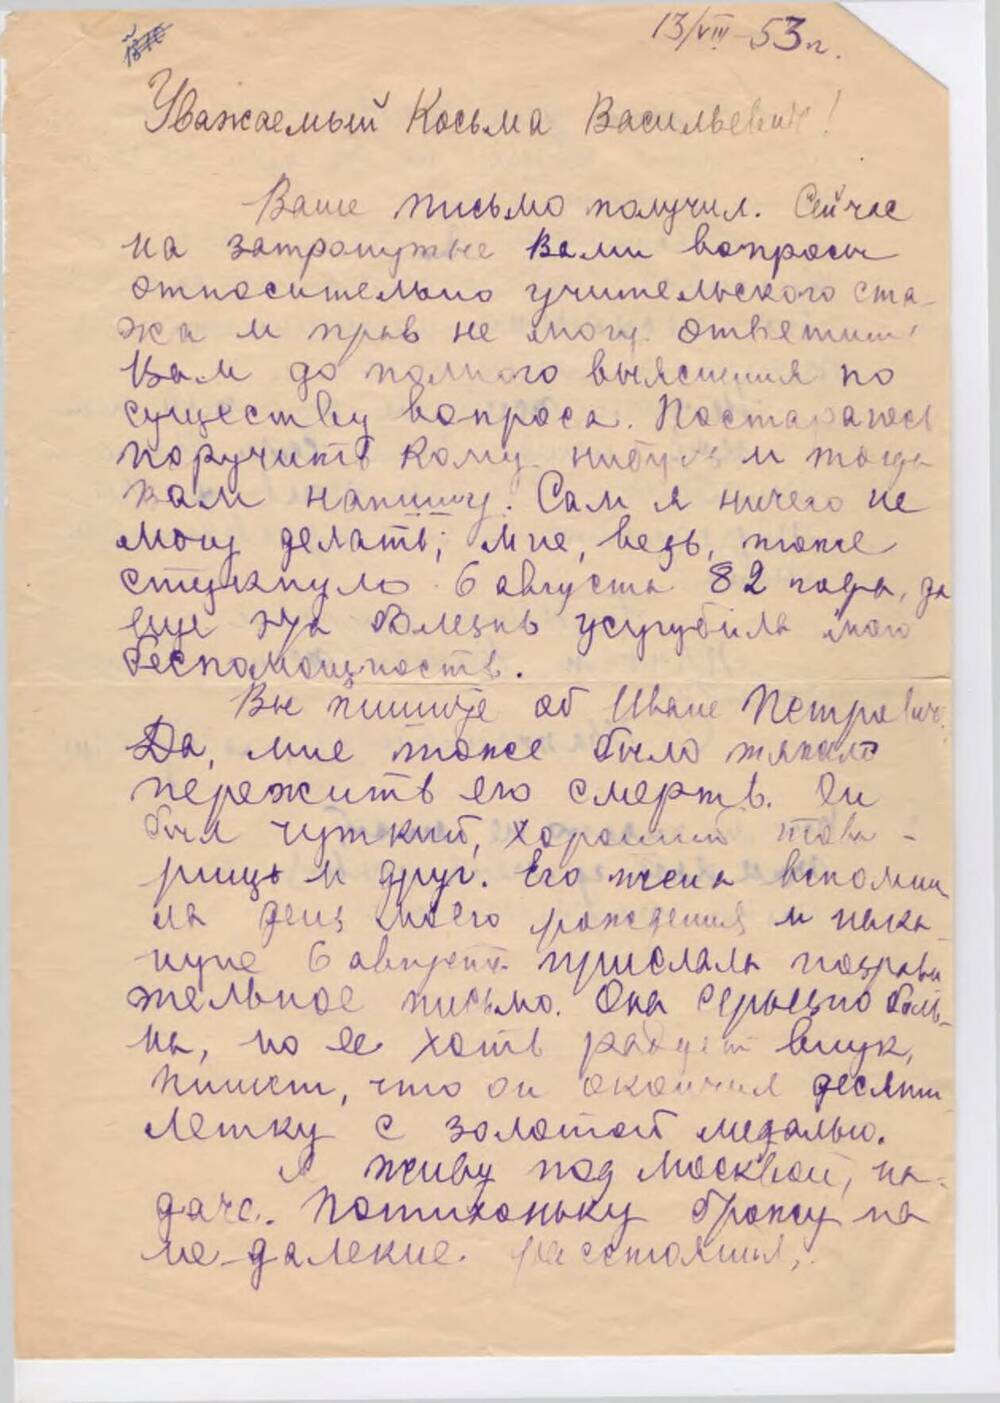 13/VIII–53 г.
Уважаемый Косьма Васильевич!
Ваше письмо получил. Сейчас
на затронутые Вами вопросы
относительно учительского ста-
жа и прав не могу ответить
Вам до полного выяснения по
существу вопроса. Постараюсь
поручить кому-нибудь и тогда
вам напишу. Сам я ничего не
могу делать; мне, ведь, тоже
стукнуло 6 августа 82 года, да
еще эта болезнь усугубила мою
беспомощность.
Вы пишите об Иване Петровиче.
Да, мне тоже было тяжело
пережить его смерть. Он
был чуткий, хороший това-
рищь и друг. Его жена вспомни
ла день моего рождения и нака-
нуне 6 августа прислала поздрави
тельное письмо. Она серьезно боль-
на, но ее хоть радует внук,
пишет, что он окончил десяти
летку с золотой медалью.
Я живу под Москвой, на
даче. Потихоньку брожу на
не-далекие расстояния,